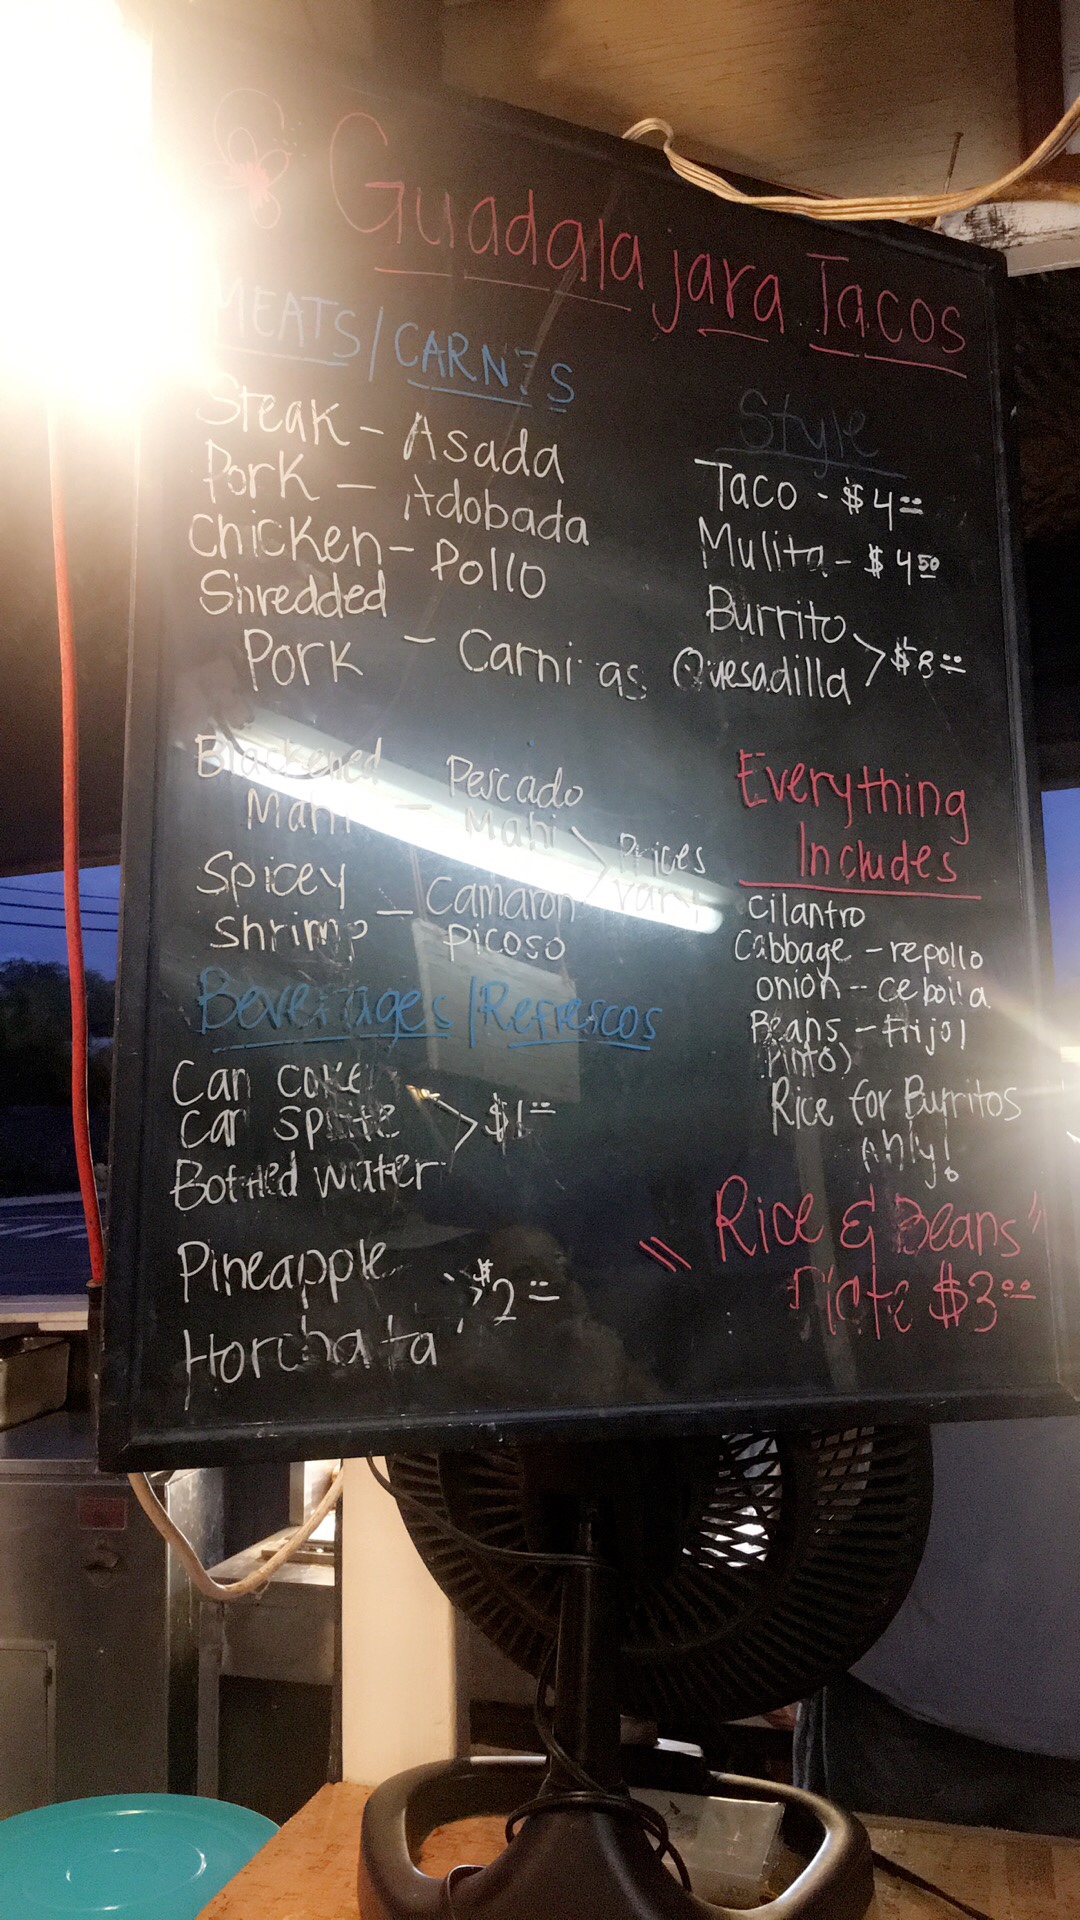 Guadalajara Tacos
MEATS/CARNES
Steak - Asada
Pork - Adobada
Chicken - Pollo
Shredded
Pork - Carnitas
Blackened
Mahi - Pescado
Mahi
Spicey
Shrimp - Camaron
picoso
Prices
vary
Style
Taco - $4.00
Mulita - $4.50
Burrito
Quesadilla > $8.00
Everything
Includes
cilantro
Cabbage - repollo
onion - cebolla
Beans - Frijol
Pinto)
Rice for Burritos
only!
"Rice & Beans"
Plate $3.00
Beverages/Refrescos
Can coke
Can sprite
Bottled water
> $1.00
Pineapple
Horchata
$2.00